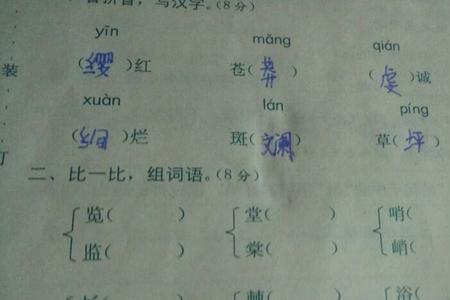 拼音，写汉字。(8分)
yīn măng qián
装
(缨)红 苍(莽) (虔)诚
xuàn lán píng
(绚)烂 斑(斓) 草(坪)
二、比一比，组词语。(8分)
览( ) 堂( ) 哨(
监( ) 棠( ) 峭(